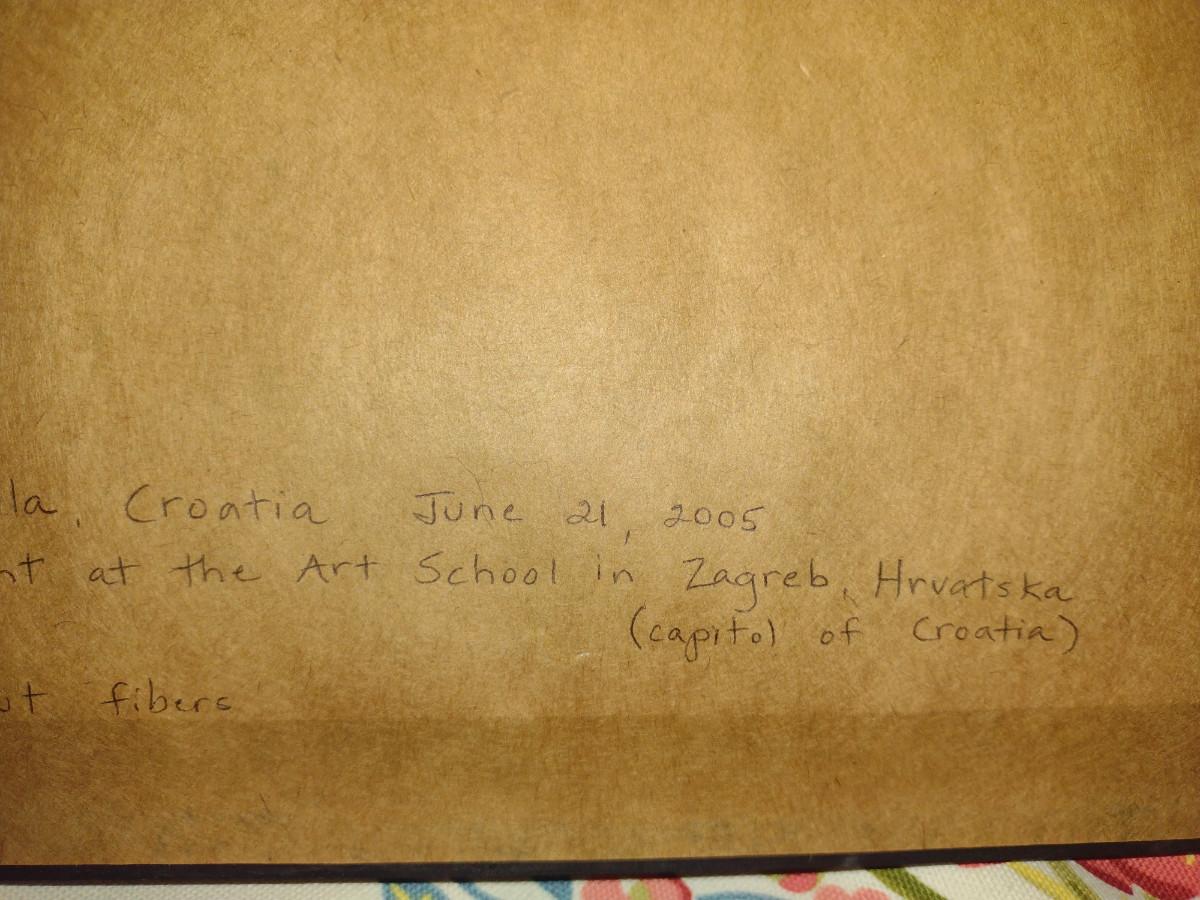 la, Croatia June 21, 2005
nt at the Art School in Zagreb, Hrvatska
(capitol of Croatia)
ut fibers